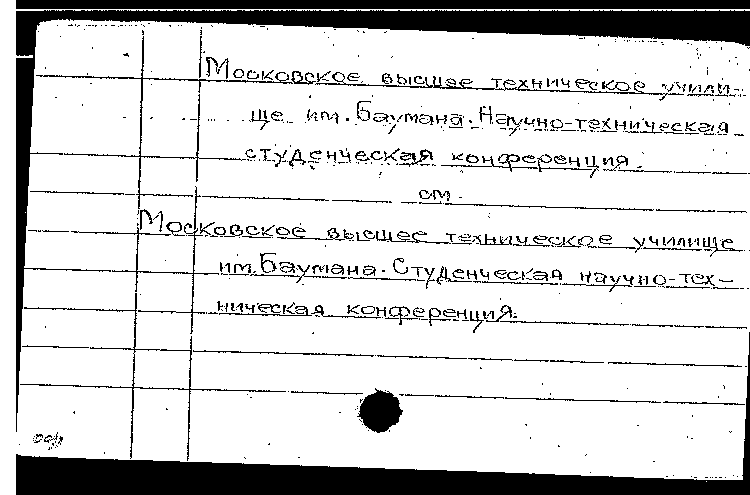 Московское высшее техническое учили-
ще им. Баумана. Научно-техническая
студенческая конференция.
см.
Московское высшее техническое училище
им. Баумана. Студенческая научно-тех-
ническая конференция.